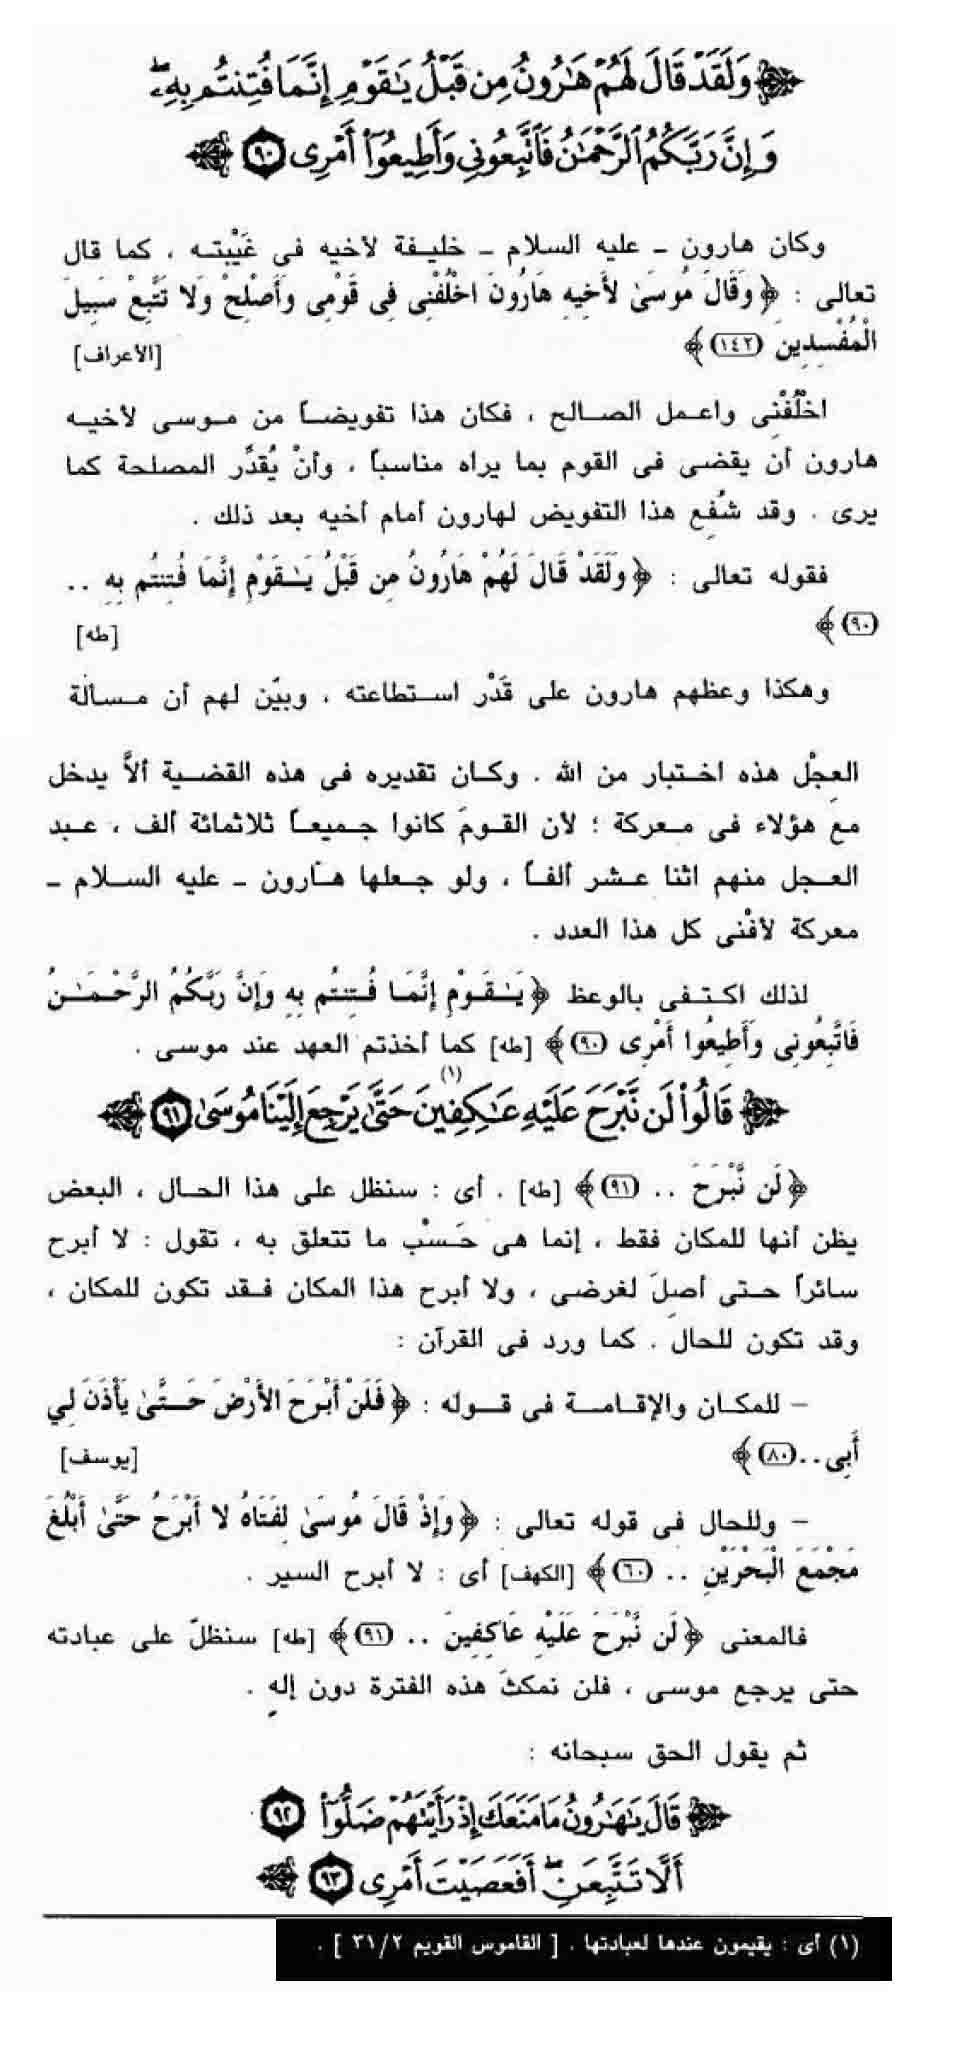 ﴿ وَلَقَدْ قَالَ لَهُمْ هَٰرُونُ مِن قَبْلُ يَٰقَوْمِ إِنَّمَا فُتِنتُم بِهِۦۖ
وَإِنَّ رَبَّكُمُ ٱلرَّحْمَٰنُ فَٱتَّبِعُونِى وَأَطِيعُوٓا۟ أَمْرِى ٩٠ ﴾
وكان هارون - عليه السلام - خليفة لأخيه فى غَيْبته ، كما قال
تعالى : ﴿ وَقَالَ مُوسَىٰ لأَخِيهِ هَارُونَ اخْلُفْنِى فِى قَوْمِى وَأَصْلِحْ وَلا تَتَّبِعْ سَبِيلَ
الْمُفْسِدِينَ (١٤٢) ﴾ [الأعراف]
اخْلُفْنِى واعمل الصالح ، فكان هذا تفويضاً من موسى لأخيه
هارون أن يقضى فى القوم بما يراه مناسباً ، وأنْ يُقدِّر المصلحة كما
يرى . وقد شُفِع هذا التفويض لهارون أمام أخيه بعد ذلك .
فقوله تعالى : ﴿ وَلَقَدْ قَالَ لَهُمْ هَارُونُ مِن قَبْلُ يَـٰقَوْمِ إِنَّمَا فُتِنتُم بِهِ ..
(٩٠) ﴾ [طه]
وهكذا وعظهم هارون على قَدْر استطاعته ، وبيّن لهم أن مسألة
العِجْل هذه اختبار من الله . وكان تقديره فى هذه القضية ألاَّ يدخل
مع هؤلاء فى معركة ؛ لأن القومَ كانوا جميعاً ثلاثمائة ألف ، عبد
العجل منهم اثنا عشر ألفاً ، ولو جعلها هارون - عليه السلام -
معركة لأفْنى كل هذا العدد .
لذلك اكتفى بالوعظ ﴿ يَـٰقَوْمِ إِنَّمَا فُتِنتُم بِهِ وَإِنَّ رَبَّكُمُ الرَّحْمَـٰنُ
فَاتَّبِعُونِى وَأَطِيعُوا أَمْرِى (٩٠) ﴾ [طه] كما أخذتم العهد عند موسى .
﴿ قَالُوا۟ لَن نَّبْرَحَ عَلَيْهِ عَٰكِفِينَ (١) حَتَّىٰ يَرْجِعَ إِلَيْنَا مُوسَىٰ ٩١ ﴾
﴿ لَن نَّبْرَحَ .. (٩١) ﴾ [طه] . أى : سنظل على هذا الحال ، البعض
يظن أنها للمكان فقط ، إنما هى حَسْب ما تتعلق به ، تقول : لا أبرح
سائراً حتى أصِلَ لغرضى ، ولا أبرح هذا المكان فقد تكون للمكان ،
وقد تكون للحال . كما ورد فى القرآن :
- للمكان والإقامة فى قوله : ﴿ فَلَنْ أَبْرَحَ الأَرْضَ حَتَّىٰ يَأْذَنَ لِي
أَبِى .. (٨٠) ﴾ [يوسف]
- وللحال فى قوله تعالى : ﴿ وَإِذْ قَالَ مُوسَىٰ لِفَتَاهُ لا أَبْرَحُ حَتَّىٰ أَبْلُغَ
مَجْمَعَ الْبَحْرَيْنِ .. (٦٠) ﴾ [الكهف] أى : لا أبرح السير .
فالمعنى ﴿ لَن نَّبْرَحَ عَلَيْهِ عَاكِفِينَ .. (٩١) ﴾ [طه] سنظلّ على عبادته
حتى يرجع موسى ، فلن نمكثَ هذه الفترة دون إلهٍ .
ثم يقول الحق سبحانه :
﴿ قَالَ يَٰهَٰرُونُ مَا مَنَعَكَ إِذْ رَأَيْتَهُمْ ضَلُّوٓا۟ ٩٢
أَلَّا تَتَّبِعَنِۖ أَفَعَصَيْتَ أَمْرِى ٩٣ ﴾
(١) أى : يقيمون عندها لعبادتها . [ القاموس القويم ٣١/٢ ] .